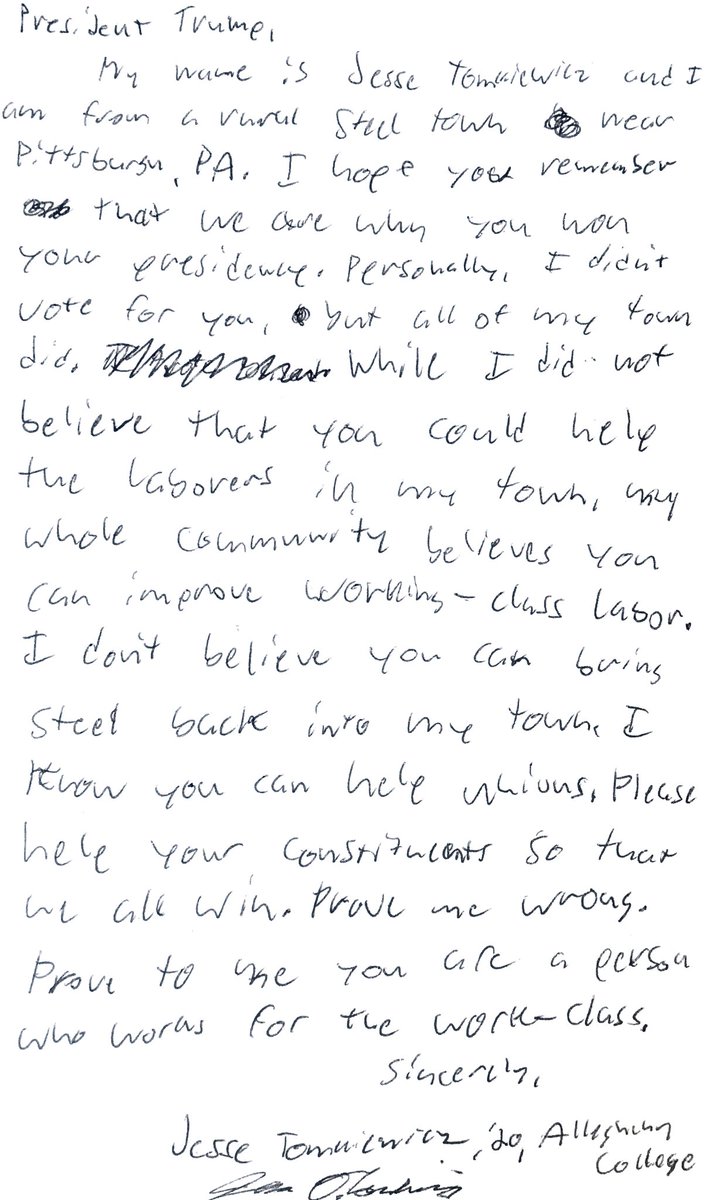 President Trump,
My name is Jesse Tomkiewicz and I
am from a rural steel town near
Pittsburgh, PA. I hope you remember
that we are why you won
your presidency. Personally, I didn't
vote for you, but all of my town
did. While I did not
believe that you could help
the laborers in my town, my
whole community believes you
can improve working-class labor.
I don't believe you can bring
steel back into my town. I
know you can help unions. Please
help your constituents so that
we all win. Prove me wrong.
Prove to me you are a person
who works for the work-class.
Sincerly,
Jesse Tomkiewicz, '20, Allegheny
College